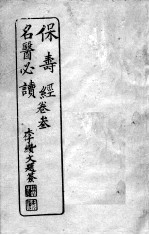 保壽經卷叁
名醫必讀
李續文題簽